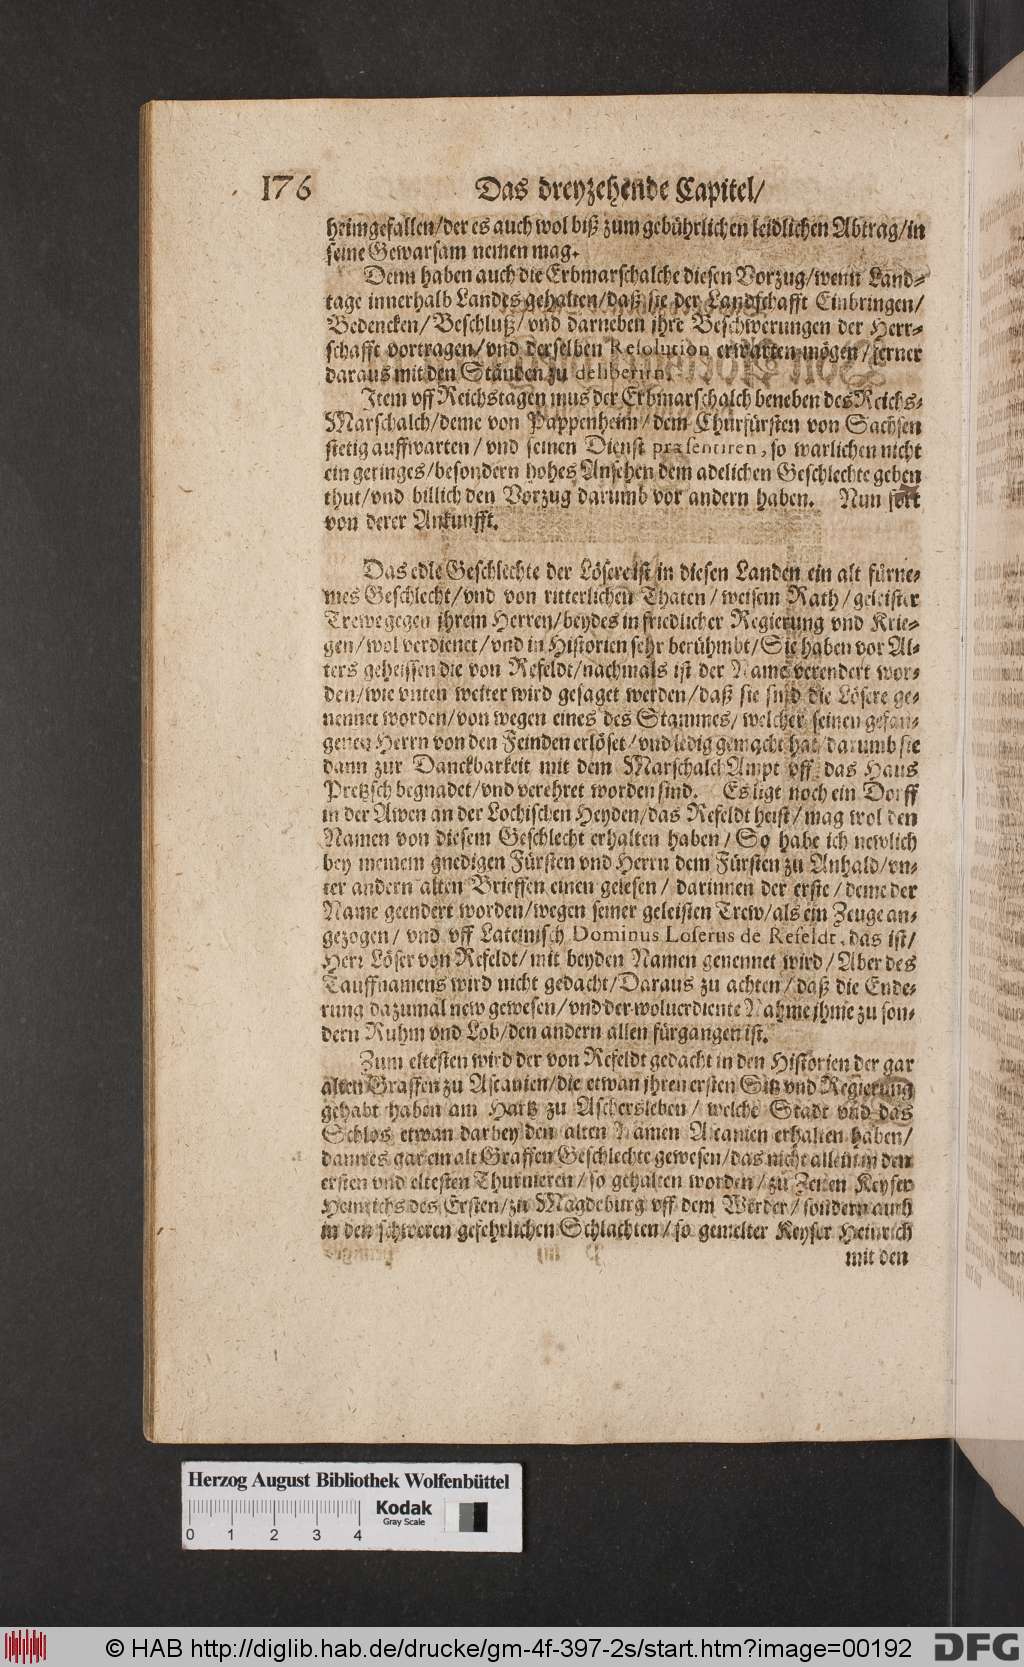 176
Das dreyzehende Capitel/
heimgefallen/der es auch wol biß zum gebührlichen leidlichen Abtrag/in
seine Gewarsam nemen mag.
Denn haben auch die Erbmarschalche diesen Vorzug/wenn Land-
tage innerhalb Landes gehalten/daß sie der Landschafft Einbringen/
Bedencken/Beschluß/vnd darneben jhre Beschwerungen der Herr-
schafft vortragen/vnd derselben Resolution erwarten mögen/ferner
daraus mit den Ständen zu deliberirn.
Item vff Reichstagen mus der Erbmarschalch beneben des Reichs-
Marschalch/deme von Pappenheim/dem Churfürsten von Sachsen
stetig auffwarten/vnd seinen Dienst præsentiren, so warlichen nicht
ein geringes/besondern hohes Ansehen dem adelichen Geschlechte geben
thut/vnd billich den Vorzug darumb vor andern haben. Nun fort
von derer Ankunfft.
Das edle Geschlechte der Lösere ist in diesen Landen ein alt fürne-
mes Geschlecht/vnd von ritterlichen Thaten/weisem Rath/geleister
Trewe gegen jhrem Herren/beydes in friedlicher Regierung vnd Krie-
gen/wol verdienet/vnd in Historien sehr berühmbt/Sie haben vor Al-
ters geheissen die von Refeldt/nachmals ist der Name verendert wor-
den/wie vnten weiter wird gesaget werden/daß sie sind die Lösere ge-
nennet worden/von wegen eines des Stammes/welcher seinen gefan-
genen Herrn von den Feinden erlöset/vnd ledig gemacht hat/darumb sie
dann zur Danckbarkeit mit dem Marschalch Ampt vff das Haus
Pretzsch begnadet/vnd verehret worden sind. Es ligt noch ein Dorff
in der Awen an der Lochischen Heyden/das Refeldt heist/mag wol den
Namen von diesem Geschlecht erhalten haben/So habe ich newlich
bey meinem gnedigen Fürsten vnd Herrn dem Fürsten zu Anhald/vn-
ter andern alten Brieffen einen gelesen/darinnen der erste/deme der
Name geendert worden/wegen seiner geleisten Trew/als ein Zeuge an-
gezogen/vnd vff Lateinisch Dominus Loserus de Refeldt, das ist/
Herr Löser von Refeldt/mit beyden Namen genennet wird/Aber des
Tauffnamens wird nicht gedacht/Daraus zu achten/daß die Ende-
rung dazumal new gewesen/vnd der woluerdiente Nahme jhme zu son-
dern Ruhm vnd Lob/den andern allen fürgangen ist.
Zum eltesten wird der von Refeldt gedacht in den Historien der gar
alten Graffen zu Ascanien/die etwan jhren ersten Sitz vnd Regierung
gehabt haben am Hartz zu Aschersleben/welche Stadt vnd das
Schlos etwan darbey den alten Namen Ascanien erhalten haben/
dann es gar ein alt Graffen Geschlechte gewesen/das nicht allein in den
ersten vnd eltesten Thurnieren/so gehalten worden/zu Zeiten Keyser
Heinrichs des Ersten/zu Magdeburg vff dem Werder/sondern auch
in den schweren gefehrlichen Schlachten/so gemelter Keyser Heinrich
mit den
Herzog August Bibliothek Wolfenbüttel
Kodak
Gray Scale
0 1 2 3 4
© HAB http://diglib.hab.de/drucke/gm-4f-397-2s/start.htm?image=00192
DFG